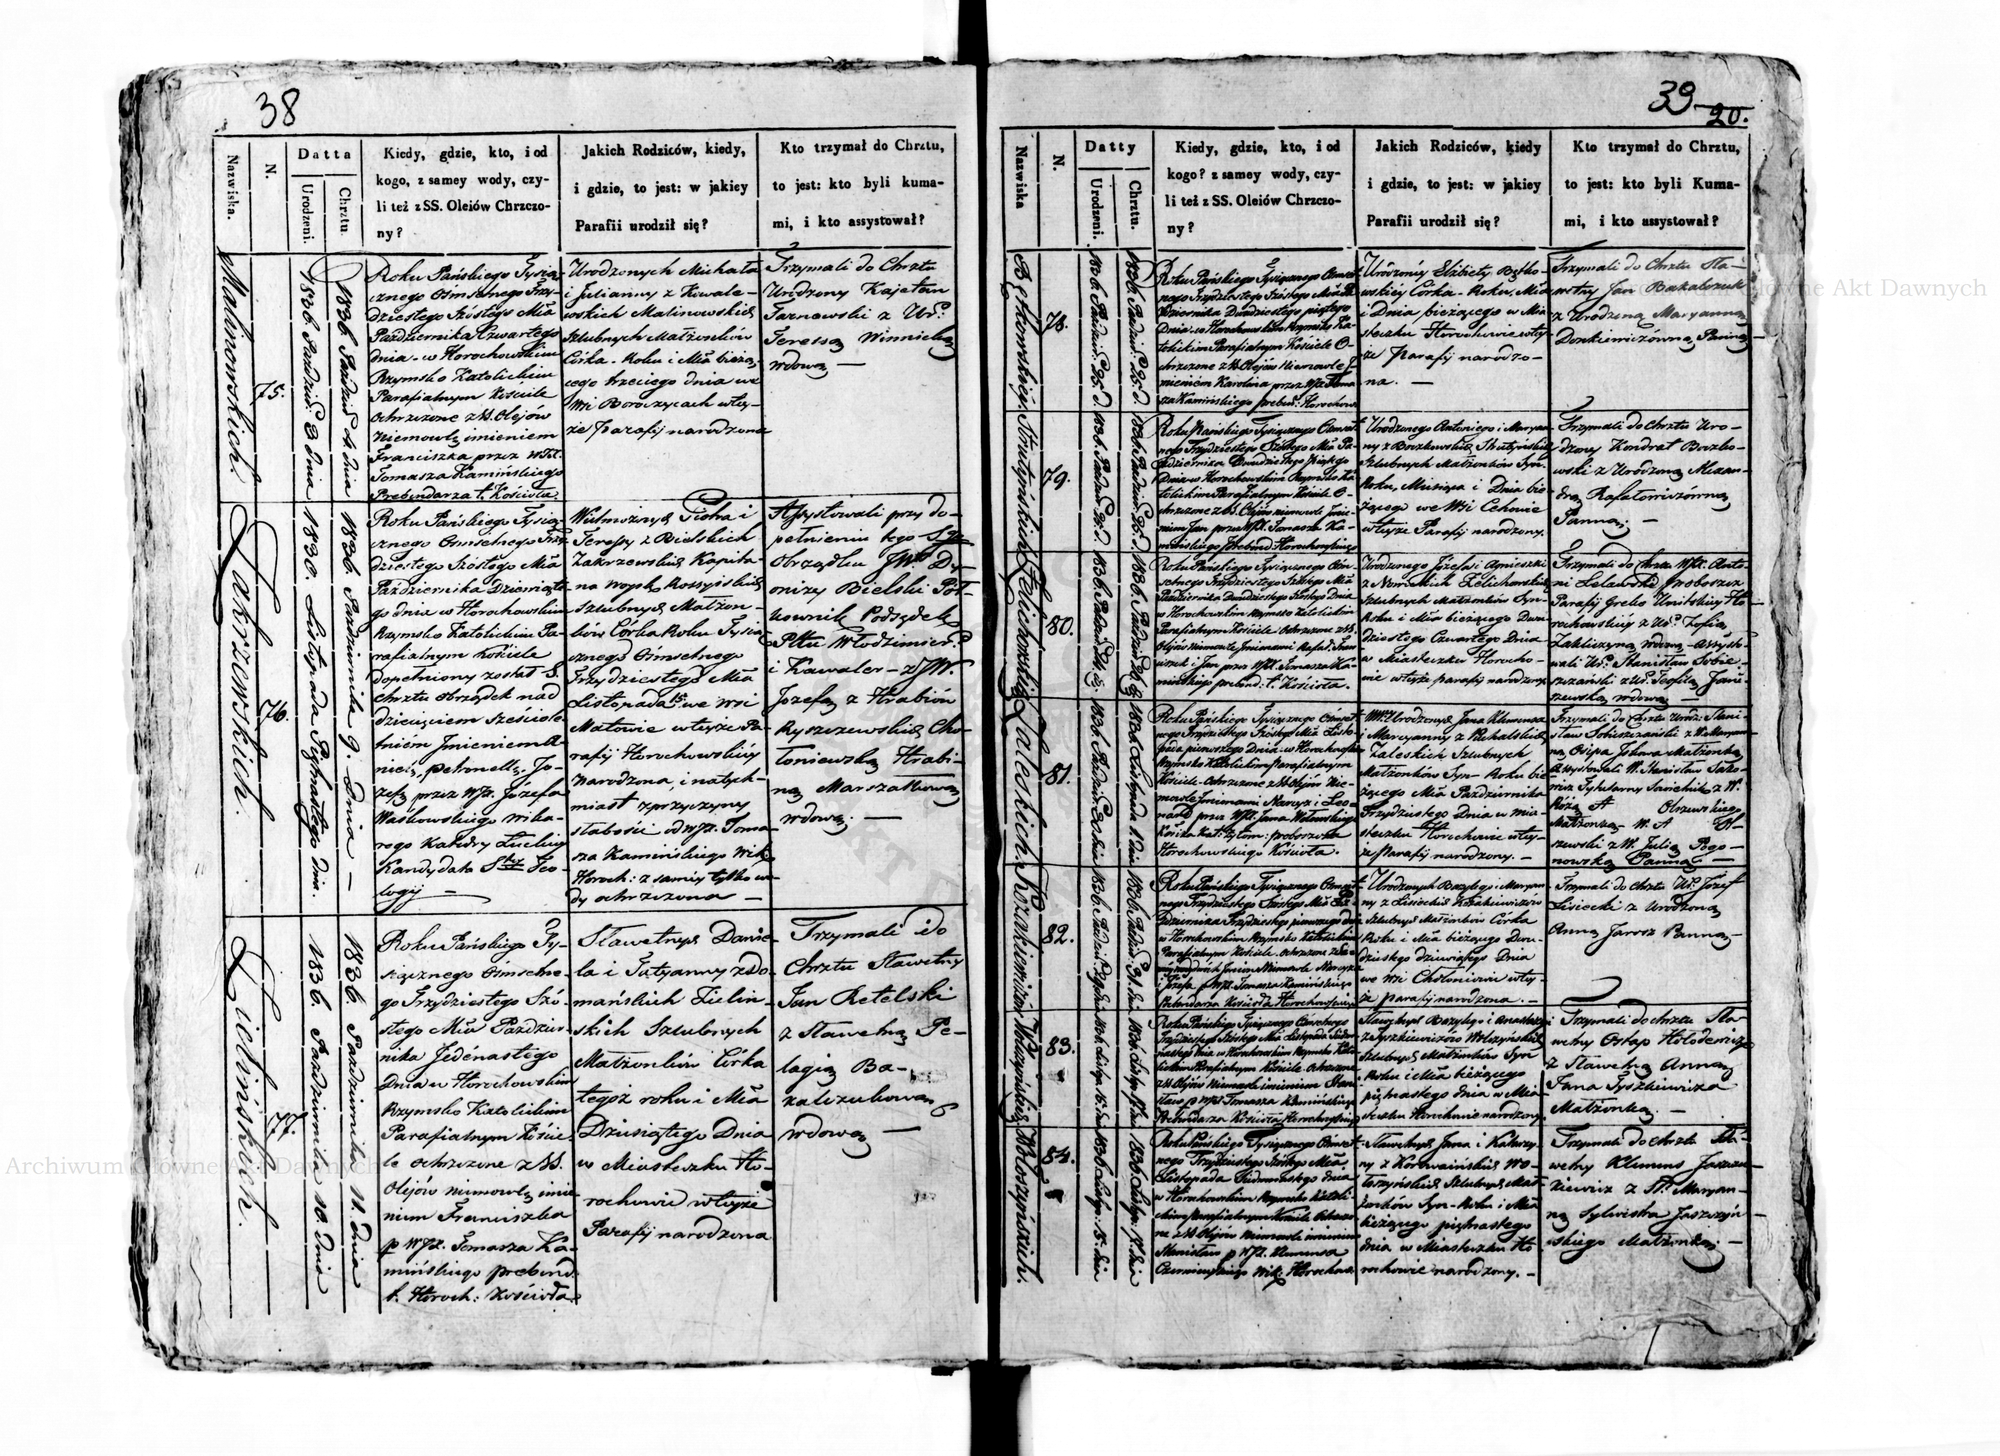 38
Nazwiska.
N.
Datta
Urodzeni.
Chrztu
Kiedy, gdzie, kto, i od
kogo, z samey wody, czy-
li też z SS. Oleiów Chrzczo-
ny?
Jakich Rodziców, kiedy,
i gdzie, to jest: w jakiey
Parafii urodził się?
Kto trzymał do Chrztu,
to jest: kto byli kuma-
mi, i kto assystował?
Malinowskich.
75.
1836 Paździer. 3 dnia
1836 Paździer. 4 dnia
Roku Pańskiego Tysią-
cznego Ośmsetnego Trzy-
dziestego Szóstego Mca
Października Czwartego
dnia w Horochowskim
Rzymsko Katolickim
Parafialnym Kościele
ochrzczone z SS. Olejów
Niemowlę imieniem
Franciszka przez WJX.
Tomasza Kamińskiego
Prebendarza t. Kościoła
Urodzonych Michała
i Julianny z Kowale-
wskich Malinowskich
Szlubnych Małżonków
Córka. Roku i Mca bieżą-
cego trzeciego dnia we
Wsi Boroczycach wtey-
że Parafij narodzona
Trzymali do Chrztu
Urodzony Kajetan
Tarnowski z Ur.
Teressą Winnicką
wdową —
Zakrzewskich.
76.
1830. Listopada Piętnastego dnia.
1836. Października 9. Dnia —
Roku Pańskiego Tysią-
cznego Ośmsetnego Trzy-
dziestego Szóstego Mca
Października Dziewiąte-
go dnia w Horochowskim
Rzymsko Katolickim Pa-
rafialnym Kościele
dopełniony został S.
Chrztu obrządek nad
dziecięciem sześciole-
tniém Imieniem
Petronellę, Jo-
zefę przez WJX. Józefa
Waśkowskiego Wika-
rego Katedry Łuckiey
Kandydata Stey Teo-
logij —
Wielmożnych Piotra i
Teressy z Bielskich
Zakrzewskich Kapita-
na Woysk Rossyiskich
Szlubnych Małżon-
ków Córka Roku Tysią-
cznego Ośmsetnego
Trzydziestego Mca
Listopada 15 we wsi
Matowie wteyże Pa-
rafij Horochowskiey
Narodzona, i natych-
miast z przyczyny
słabości od WJX. Toma-
sza Kamińskiego Wik.
Horoch: z samey tylko wo-
dy ochrzczona —
Assystowali przy do-
pełnieniu tego Sgo
Obrządku JWW Dy-
onizy Bielski Puł-
kownik Podsędek
Pttu Włodzimier.
i Kawaler — z JW.
Józefą z Hrabiów
Ryszczewskich Cho-
łoniewską Hrabi-
ną Marszałkową
wdową. —
Zielińskich.
77.
1836. Października 10. Dnia
1836. Października 11. Dnia
Roku Pańskiego Ty-
sięcznego Ośmsetne-
go Trzydziestego Szó-
stego Mca Paździer-
nika Jedénastego
Dnia w Horochowskim
Rzymsko Katolickim
Parafialnym Koście-
le ochrzczone z SS.
Olejów niemowlę imie-
niem Franciszka
p WJX. Tomasza Ka-
mińskiego prebend.
t. Horoch: Kościoła.
Sławetnych Danie-
la i Tatyanny z Do-
mańskich Zieliń-
skich Szlubnych
Małżonków Córka
tegoż roku i Mca
Dziesiątego Dnia
w Miasteczku Ho-
rochowie wteyże
Parafij narodzona
Trzymali do
Chrztu Sławetny
Jan Retelski
z Sławetną Pe-
lagią Ba-
kalczukową
wdową —
39
20.
Nazwiska
N.
Datty
Urodzeni.
Chrztu.
Kiedy, gdzie, kto, i od
kogo? z samey wody, czy-
li też z SS. Oleiów Chrzczo-
ny?
Jakich Rodziców, kiedy
i gdzie, to jest: w jakiey
Parafii urodził się?
Kto trzymał do Chrztu,
to jest: kto byli Kuma-
mi, i kto assystował?
78.
Roku Pańskiego Tysiącznego Ośmset-
nego Trzydziestego Szóstego Mca Pa-
ździernika Dwudziestego piątego
Dnia w Horochowskim Rzymsko Ka-
tolickim Parafialnym Kościele O-
chrzczone z SS. Olejów Niemowle I-
mieniem Karolina przez WJX. Toma-
sza Kamińskiego prebend: Horochow.
Urodzoney Elżbiety Bętko-
wskiey Córka — Roku, Mca
i Dnia bieżącego w Mia-
steczku Horochowie wtey-
że Parafij narodzo-
na. —
Trzymali do Chrztu Sła-
wetny Jan Bakalczuk
z Urodzoną Maryanną
Donkiewiczówną Panną —
79.
Roku Pańskiego Tysiącznego Ośmset-
nego Trzydziestego Szóstego Mca Pa-
ździernika Dwudziestego Piątego
Dnia w Horochowskim Rzymsko Ka-
tolickim Parafialnym Kościele O-
chrzczone z SS. Olejów niemowle Imie-
niem Jan przez WJX. Tomasza Ka-
mińskiego Prebend: Horochowskiego
Urodzonego Antoniego i Maryan-
ny z Borzkowskich Strutyńskich
Szlubnych Małżonków Syn.
Roku, Miesiąca i Dnia bie-
żącego we Wsi Cehowie
wteyże Parafij narodzony.
Trzymali do Chrztu Uro-
dzony Kondrat Borzko-
wski z Urodzoną Alexan-
drą Rafałowiczówną
Panną. —
80.
Roku Pańskiego Tysiącznego Ośm-
setnego Trzydziestego Szóstego Mca
Października Dwudziestego Szóstego Dnia
w Horochowskim Rzymsko Katolickim
Parafialnym Kościele Ochrzczone z SS.
Olejów Niemowle Imionami Rafał, Fran-
ciszek i Jan przez WJX. Tomasza Ka-
mińskiego prebend: t. Kościoła.
Urodzonego Józefa i Agnieszki
z Niemskich Zelichowskich
Szlubnych Małżonków Syn —
Roku i Mca bieżącego Dwu-
dziestego Czwartego Dnia
w Miasteczku Horocho-
wie wteyże parafij narodzony
Trzymali do chrztu WJX. Anto-
ni Zalewski Proboszcz
Parafij Greko Unitskiey Ho-
rochowskiey z Ur. Zofią
wdową — Assysto-
wali Ur. Stanisław Sobie-
szczański z Ur. Teofilą Jani-
szewską wdową —
81.
Zaleskich.
Roku Pańskiego Tysiącznego Ośmset-
nego Trzydziestego Szóstego Mca Listo-
pada pierwszego Dnia w Horochowskim
Rzymsko Katolickim parafialnym
Kościele Ochrzczone z SS. Olejów Nie-
mowle Imionami Narcyz i Leo-
nard przez WJX. Jana
Horochowskiego Kościoła.
Urodzonych Jana Klemensa
i Maryanny z Puchalskich
Zaleskich Szlubnych
Małżonków Syn — Roku bie-
żącego Mca Października
Trzydziestego Dnia w Mia-
steczku Horochowie wtey-
że Parafij narodzony. —
Trzymali do Chrztu Urodz: Stani-
sław Sobieszczański z
Małżonką
Assystowali W. Stanisław
Panną —
82.
Roku Pańskiego Tysiącznego Ośmset-
nego Trzydziestego Szóstego Mca Pa-
ździernika Trzydziestego pierwszego dnia
w Horochowskim Rzymsko Katolickim
Parafialnym Kościele Ochrzczone
i Józefa p WJX. Tomasza Kamińskiego
Prebendarza Kościoła Horochowskiego
Urodzonych Bazylego i Maryan-
ny z Lisieckich Kozakiewiczów
Szlubnych Małżonków Córka
Roku i Mca bieżącego Dwu-
dziestego dziewiątego Dnia
we Wsi Chołoniowie wtey-
że parafij narodzona. —
Trzymali do chrztu Ur. Józef
Lisiecki z Urodzoną
Anną Jarosz Panną —
83.
Roku Pańskiego Tysiącznego Ośmsetnego
Trzydziestego Szóstego Mca Listopada Siedm-
nastego Dnia w Horochowskim Rzymsko Kato-
lickim Parafialnym Kościele Ochrzczone
z SS Olejów Niemowle imieniem Stani-
sław p WJX Tomasza Kamińskiego
Prebendarza Kościoła Horochowskiego
Sławetnych Bazylego i Anastazyi
z Tyszkiewiczów Wołczyńskich
Szlubnych Małżonków Syn
Roku i Mca bieżącego
piętnastego dnia w Mia-
steczku Horochowie narodzony
Trzymali do chrztu Sła-
wetny Ostap Hołodewicz
z Sławetną Anną
Jana Tyszkiewicza
Małżonką. —
84.
Roku Pańskiego Tysiącznego Ośmset-
nego Trzydziestego Szóstego Mca
Listopada Siedmnastego dnia
w Horochowskim Rzymsko Katoli-
ckim parafialnym Kościele Ochrzczo-
ne z SS Olejów Niemowle imieniem
Stanisław p WJX. Klemensa
Czerniewskiego Wik. Horochow.
Sławetnych Jana i Katarzy-
ny z Korowaińskich Wo-
łoszyńskich Szlubnych Mał-
żonków Syn — Roku i Mca
bieżącego piętnastego
dnia w Miasteczku Ho-
rochowie narodzony. —
Trzymali do chrztu Sła-
wetny Klemens Jaszczu-
kiewicz z St. Maryan-
ną Sylwestra Jaszczyń-
skiego Małżonką. —
Archiwum Główne Akt Dawnych
Archiwum Główne Akt Dawnych